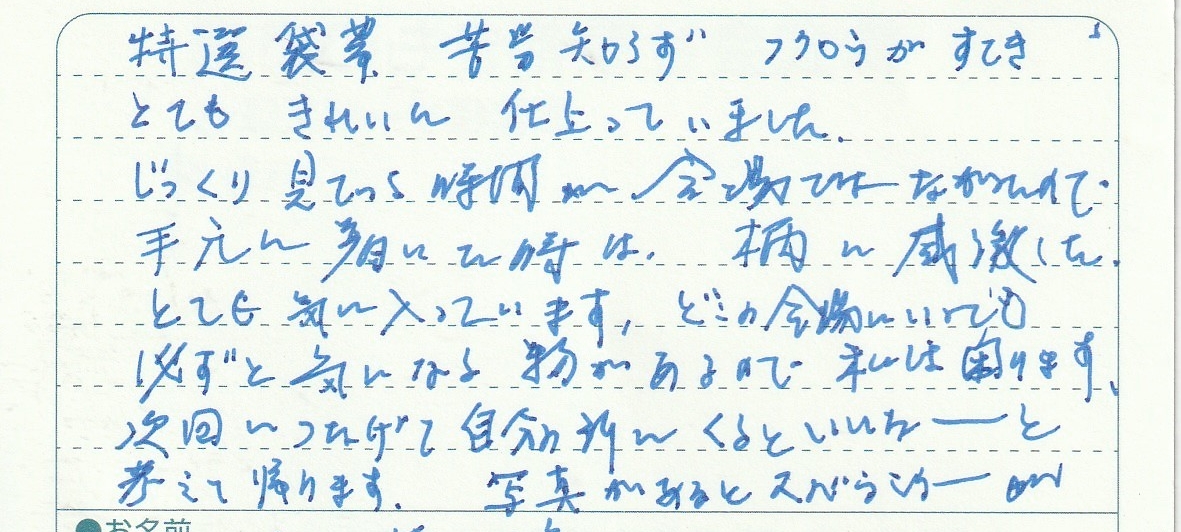 特選袋帯 苦労知らず フクロウがすてき
とても きれいに 仕上っていました.
じっくり見ている時間が 会場ではなかったので.
手元に届いた時は. 柄に感激した.
とても 気に入っています, どこの会場にいっても
必ずと気になる物があるので 私は困ります、
次回につなげて自分の所に くるといいなーと
考えて帰ります. 写真があるとスバラシー
●お名前